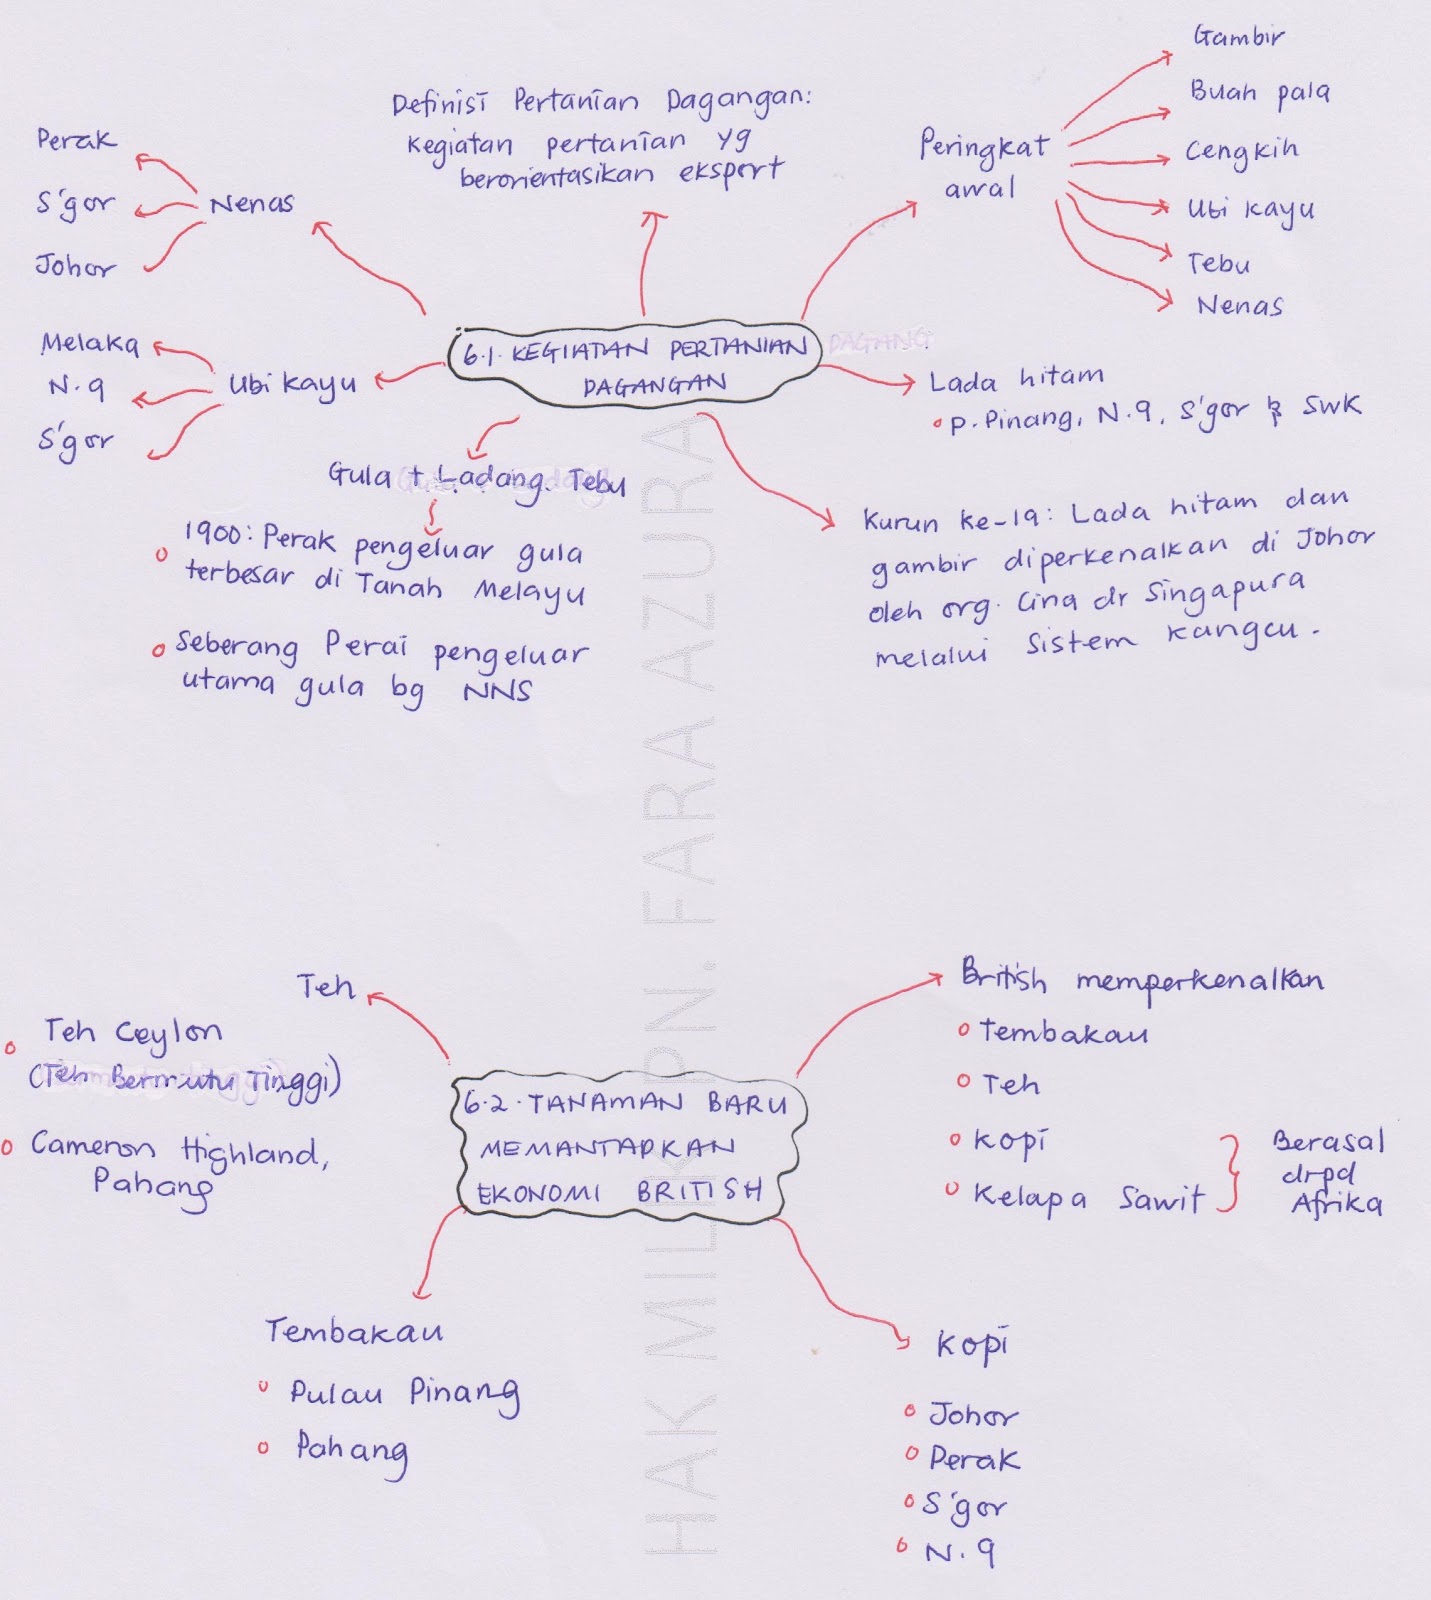 Definisi Pertanian Dagangan:
kegiatan pertanian yg
berorientasikan ekspert
Nenas
Perak
S'gor
Johor
Peringkat
awal
Gambir
Buah pala
Cengkih
Ubi kayu
Tebu
Nenas
6.1. KEGIATAN PERTANIAN
DAGANGAN
DAGANG
Ubi kayu
Melaka
N.9
S'gor
Lada hitam
P. Pinang, N.9, S'gor & Swk
Gula + Ladang Tebu
1900: Perak pengeluar gula
terbesar di Tanah Melayu
Seberang Perai pengeluar
utama gula bg NNS
Kurun ke-19: Lada hitam dan
gambir diperkenalkan di Johor
oleh org. Cina dr Singapura
melalui sistem kangcu.
HAK MILIK PN. FARA AZURA
6.2. TANAMAN BARU
MEMANTAPKAN
EKONOMI BRITISH
Teh
Teh Ceylon
(Teh Bermutu Tinggi)
Cameron Highland,
Pahang
British memperkenalkan
Tembakau
Teh
Kopi
Kelapa Sawit
Berasal
drpd
Afrika
Tembakau
Pulau Pinang
Pahang
Kopi
Johor
Perak
S'gor
N.9